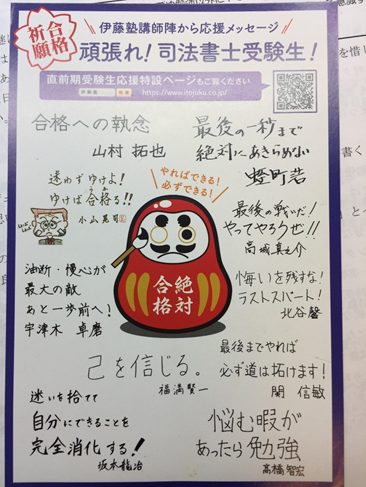 合格
祈願
伊藤塾講師陣から応援メッセージ
頑張れ！司法書士受験生！
直前期受験生応援特設ページもご覧ください
伊藤塾 検索
https://www.itojuku.co.jp/
合格への執念
山村 拓也
最後の一秒まで
絶対にあきらめない
蛭町浩
迷わずゆけよ！
ゆけば合格る！！
小山晃司
やればできる！
必ずできる！
最後の戦いだ！
やってやろうぜ！！
高城真之介
油断・慢心が
最大の敵
あと一歩前へ！
宇津木 卓磨
絶対
合格
悔いを残すな！
ラストスパート！
北谷馨
己を信じる。
福満賢一
最後までやれば
必ず道は拓けます！
関 信敏
迷いを捨てて
自分にできることを
完全消化する！
坂本龍治
悩む暇が
あったら勉強
髙橋智宏